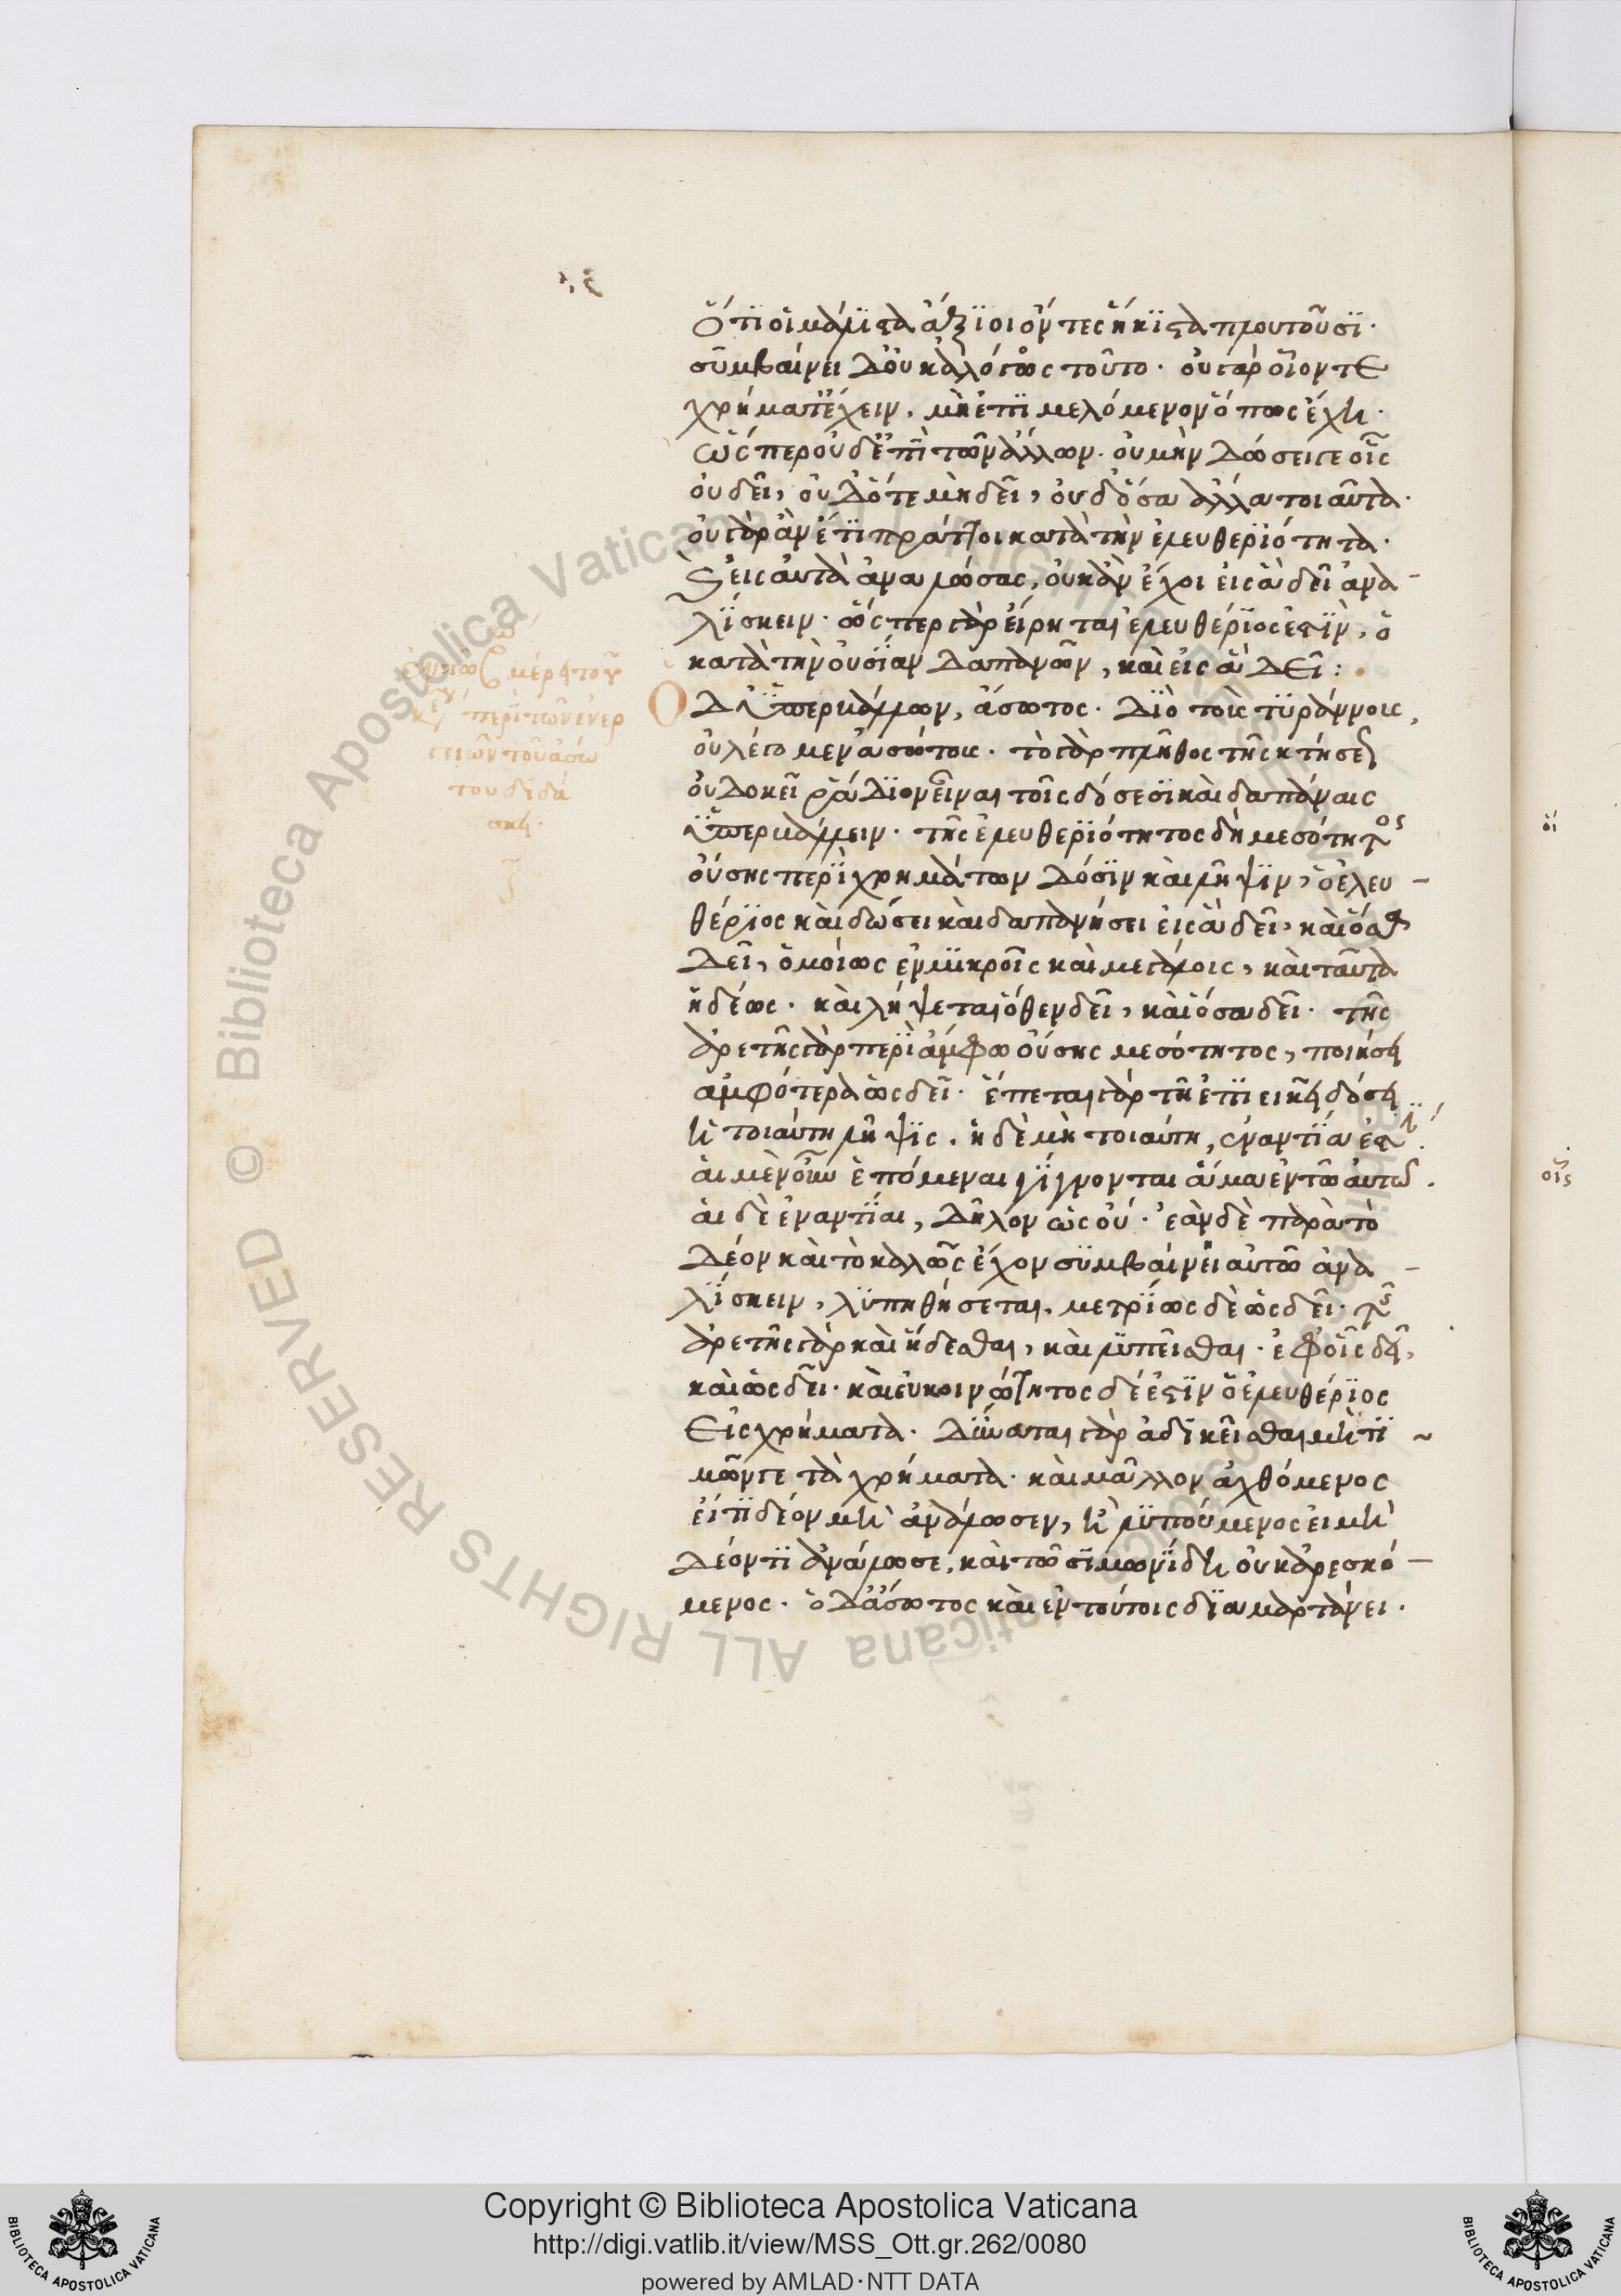 ὅτι οἱ μάλιστα ἄξιοι ὄντες ἥκιστα πλουτοῦσι·
συμβαίνει δ' οὐκ ἀλόγως τοῦτο· οὐ γὰρ οἷόν τε
χρήματ' ἔχειν, μὴ ἐπιμελόμενον ὅπως ἔχη·
ὥσπερ οὐδ' ἐπὶ τῶν ἄλλων· οὐ μὴν δώσει γε οἷς
οὐ δεῖ, οὐδ' ὅτε μὴ δεῖ, οὐδ' ὅσα ἄλλα τοιαῦτα·
οὐ γὰρ ἂν ἔτι πράττοι κατὰ τὴν ἐλευθεριότητα·
καὶ εἰς αὐτὰ ἀναλώσας, οὐκ ἂν ἔχοι εἰς ἃ δεῖ ἀνα-
λίσκειν· ὥσπερ γὰρ εἴρηται ἐλευθέριός ἐστιν, ὁ
κατὰ τὴν οὐσίαν δαπανῶν, καὶ εἰς ἃ δεῖ:
Ὁ δ' ὑπερβάλλων, ἄσωτος· διὸ τοὺς τυράννους,
οὐ λέγομεν ἀσώτους· τὸ γὰρ πλῆθος τῆς κτήσεως
οὐ δοκεῖ ῥάδιον εἶναι τοῖς δόσεσι καὶ δαπάναις
ὑπερβάλλειν· τῆς ἐλευθεριότητος δὴ μεσότητος
οὔσης περὶ χρημάτων δόσιν καὶ λῆψιν, ὁ ἐλευ-
θέριος καὶ δώσει καὶ δαπανήσει εἰς ἃ δεῖ, καὶ ὅσα
δεῖ, ὁμοίως ἐν μικροῖς καὶ μεγάλοις, καὶ ταῦτα
ἡδέως· καὶ λήψεται ὅθεν δεῖ, καὶ ὅσα δεῖ· τῆς
ἀρετῆς γὰρ περὶ ἄμφω οὔσης μεσότητος, ποιήσει
ἀμφότερα ὡς δεῖ· ἕπεται γὰρ τῇ ἐπιεικεῖ δόσει
ἡ τοιαύτη λῆψις· ἡ δὲ μὴ τοιαύτη, ἐναντία ἐστί·
αἱ μὲν οὖν ἑπόμεναι γίγνονται ἅμα ἐν τῷ αὐτῷ·
αἱ δὲ ἐναντίαι, δῆλον ὡς οὔ· ἐὰν δὲ παρὰ τὸ
δέον καὶ τὸ καλῶς ἔχον συμβαίνῃ αὐτῷ ἀνα-
λίσκειν, λυπηθήσεται, μετρίως δὲ ὡς δεῖ· τῆς
ἀρετῆς γὰρ καὶ ἥδεσθαι, καὶ λυπεῖσθαι· ἐφ' οἷς δεῖ,
καὶ ὡς δεῖ· καὶ εὐκοινώνητος δέ ἐστιν ὁ ἐλευθέριος
εἰς χρήματα· δύναται γὰρ ἀδικεῖσθαι μὴ τι-
μῶν γε τὰ χρήματα· καὶ μᾶλλον ἀχθόμενος
εἴ τι δέον μὴ ἀνάλωσεν, ἢ λυπούμενος εἰ μὴ
δέον τι ἀνάλωσε, καὶ τῷ σιμωνίδη οὐκ ἀρεσκό-
μενος· ὁ δ' ἄσωτος καὶ ἐν τούτοις διαμαρτάνει·
περὶ τῶν ἐνερ
γειῶν τοῦ ἀσώ
του διδά
σκει·
οἱ
οἷς
Copyright © Biblioteca Apostolica Vaticana
http://digi.vatlib.it/view/MSS_Ott.gr.262/0080
powered by AMLAD·NTT DATA
BIBLIOTECA APOSTOLICA VATICANA
BIBLIOTECA APOSTOLICA VATICANA
© Biblioteca Apostolica Vaticana ALL RIGHTS RESERVED